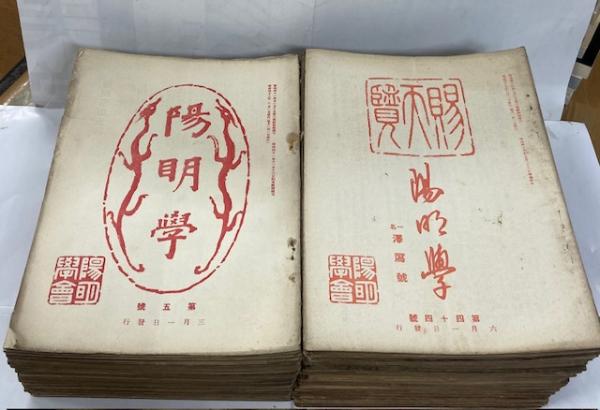 陽明學
陽明學會
第五號
三月一日發行
賜天覽
陽明學
一名澤瀉號
陽明學會
第四十四號
六月一日發行